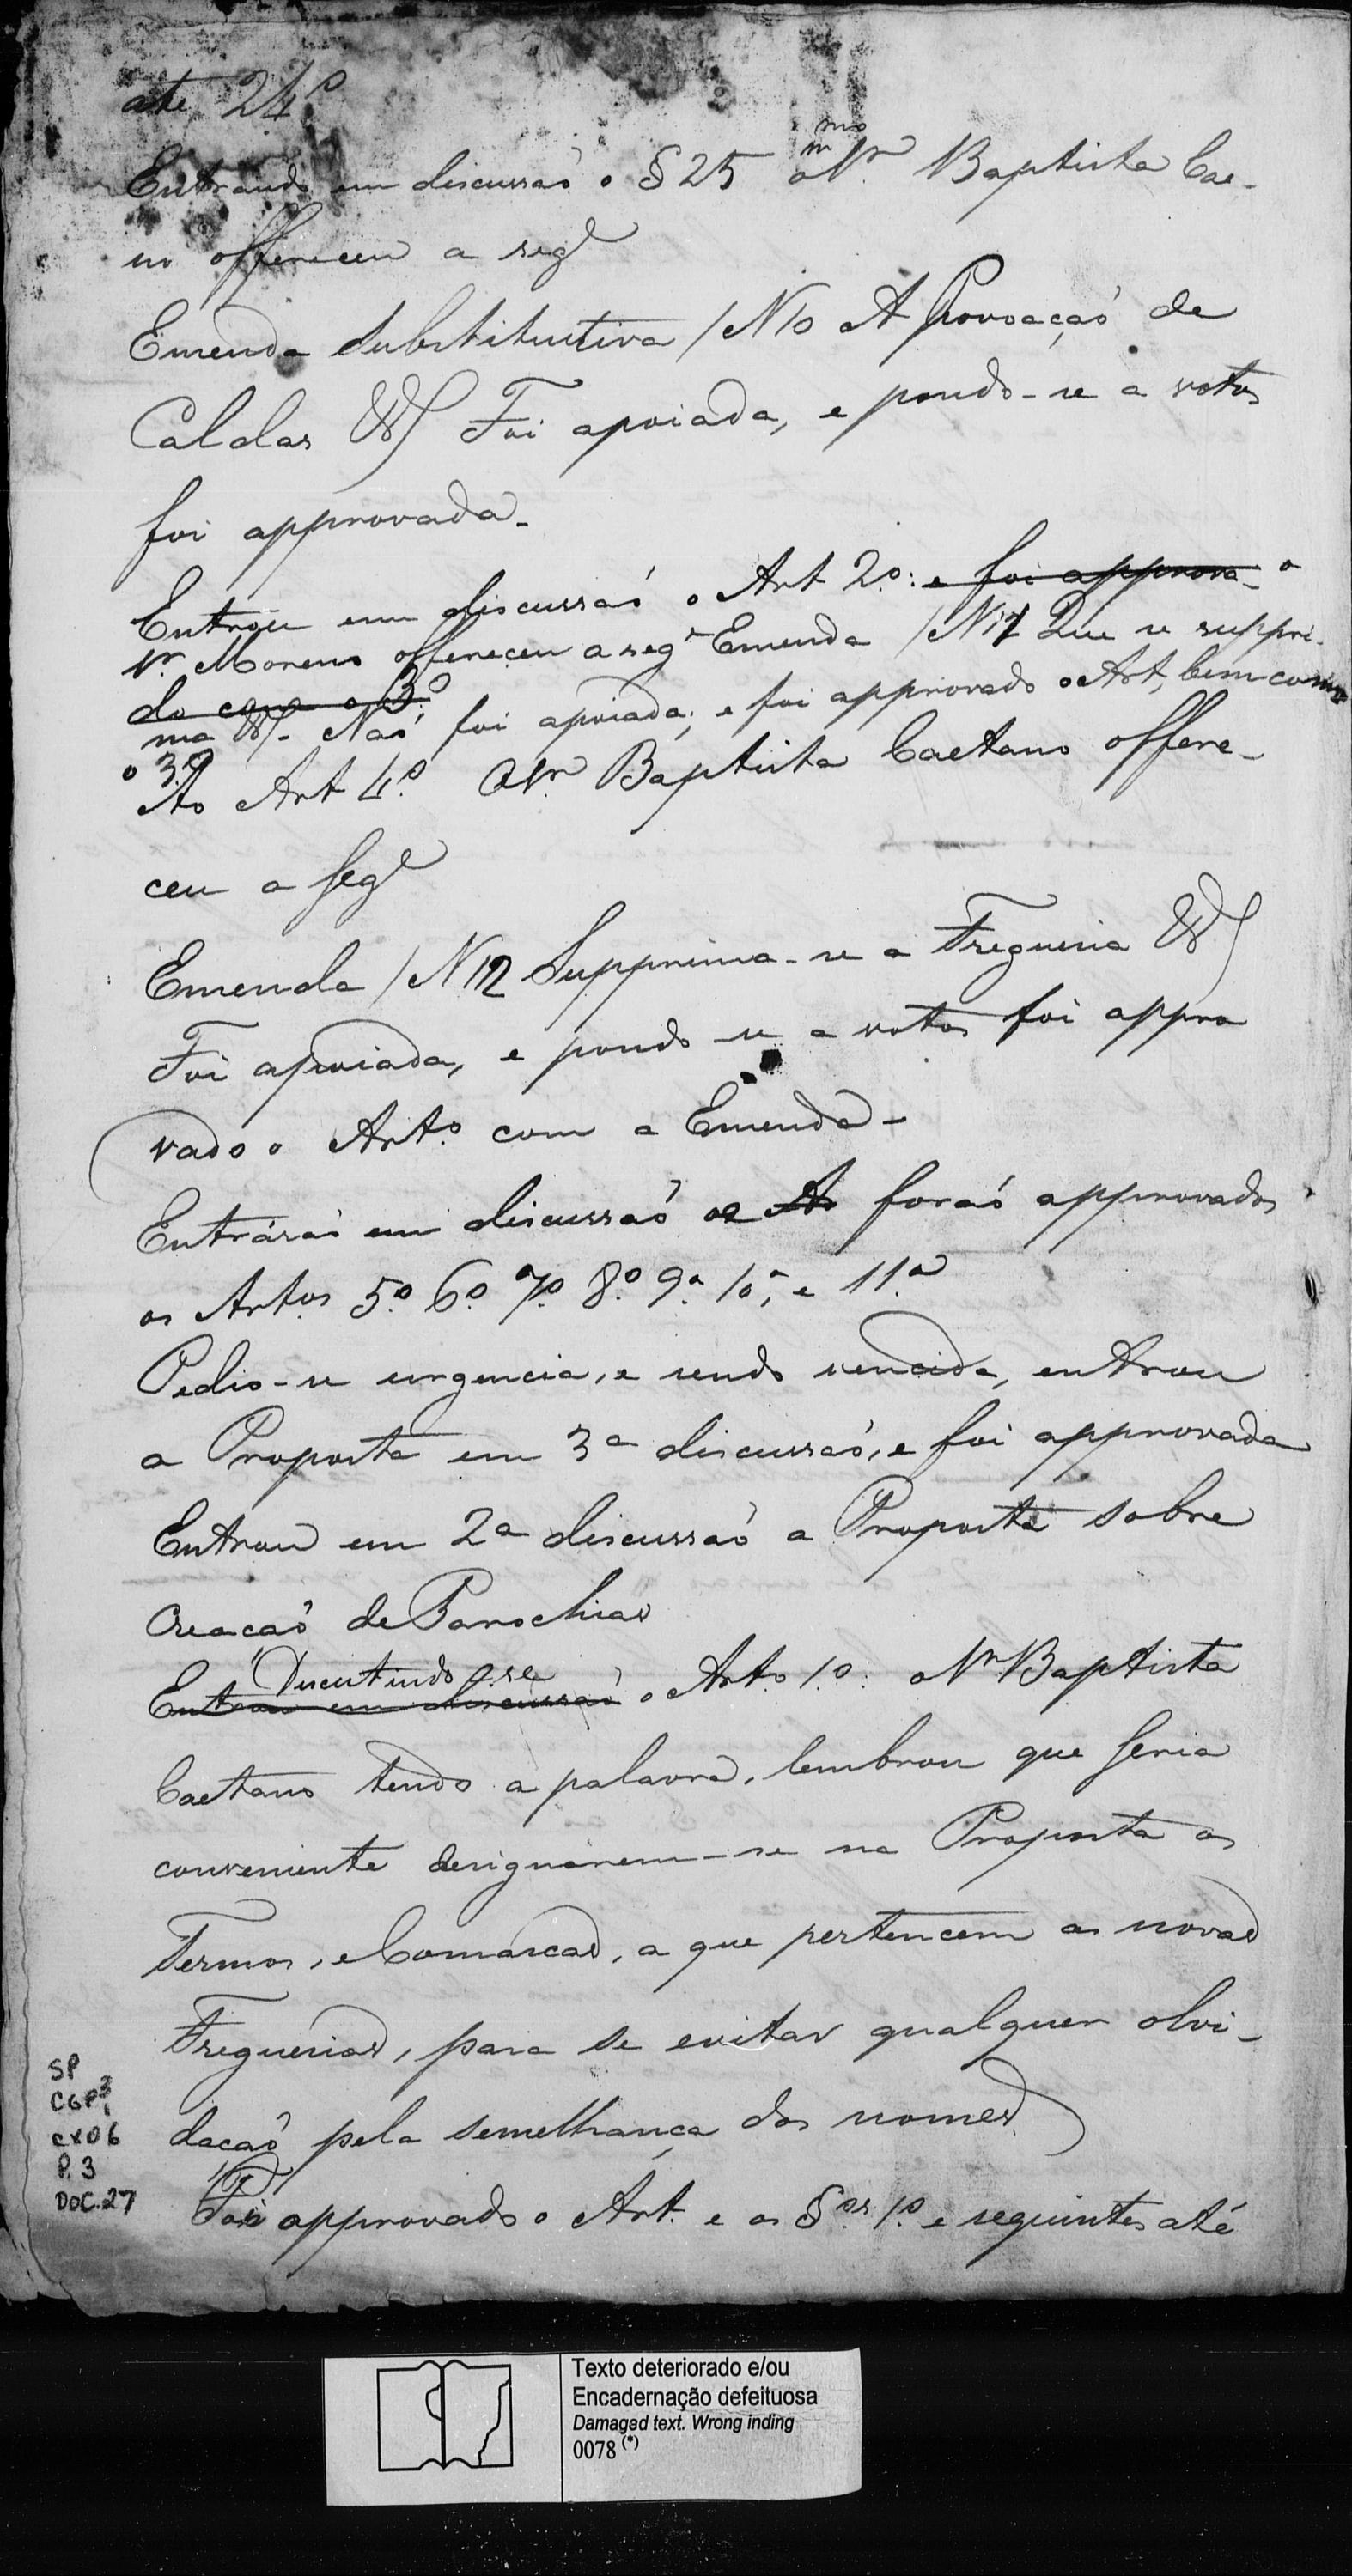 ate 24º
Entrando em discussaõ o § 25 o mmo Sr. Baptista Cae-
no offereceu a segᵉ
Emenda substitutiva / N 10 A Povoaçaõ de
Caldas W/ Foi apoiada, e pondo-se a votos
foi approvada.
Entrou em discussaõ o Art 2º: e foi approva- o
Sr. Moreno offereceu a segᵉ Emenda / N 11 Que se suppri-
do como o 3º
ma W/- Naõ foi apoiada; e foi approvado o Art, bem como
o 3º
Ao Art 4º O Sr. Baptista Caetano offere-
ceu a segᵉ
Emenda / N 12 Supprima-se a Freguesia W/
Foi apoiada, e pondo-se a votos foi appro
vado o Artº com a Emenda-
Entráraõ em discussaõ e foraõ approvados
os Artos 5º 6º 7º 8º 9º 10º, e 11º
Pedio-se urgencia, e sendo vencida, entrou
a Proposta em 3ª discussaõ, e foi approvada
Entrou em 2ª discussaõ a Proposta sobre
Creacaõ de Parochias
Discutindo-se
Entrou em discussaõ o Artº 1º: o Sr Baptista
Caetano tendo a palavra, lembrou que seria
conveniente designarem-se na Proposta os
Termos, e Comarcas, a que pertencem as novas
Freguesias, para se evitar qualquer olvi-
daçaõ pela semelhança dos nomes
Foi approvado o Art. e os §os 1º e seguintes até
SP
CGP 3
cx06
P. 3
DOC.27
Texto deteriorado e/ou
Encadernação defeituosa
Damaged text. Wrong inding
0078 (*)